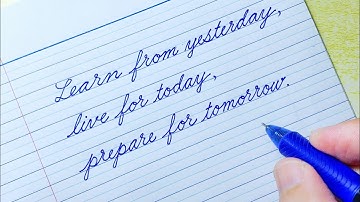 Learn from yesterday,
live for today,
prepare for tomorrow.